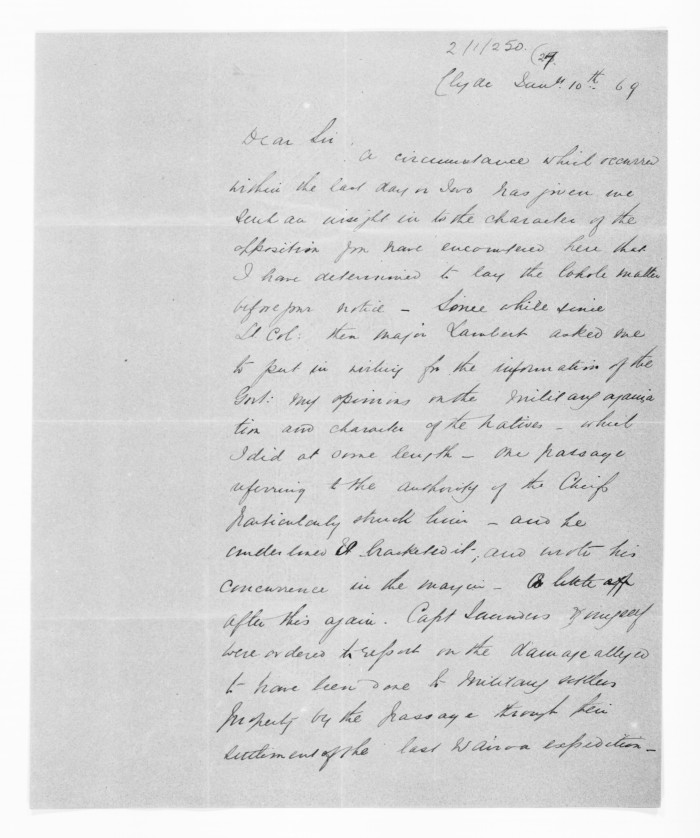 2/1/250. (27.
Clyde Jany. 10th 69
Dear Sir,
A circumstance which occurred
within the last day or two has given me
such an insight in to the character of the
opposition you have encountered here that
I have determined to lay the whole matter
before your notice – Some while since
Lt Col: then Major Lambert asked me
to put in writing for the information of the
Govt: my opinions on the Military organiza
tion and character of the Natives – which
I did at some length – One passage
referring to the authority of the Chiefs
particularly struck him – and he
underlined & bracketed it, and wrote his
concurrence in the margin – A little
after this again. Capt Saunders & myself
were ordered to report on the damage alleged
to have been done to Military settlers
property by the passage through their
settlement of the last Wairoa expedition –